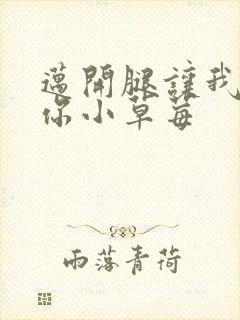 邁開腿讓我
你小草莓
雨落青荷